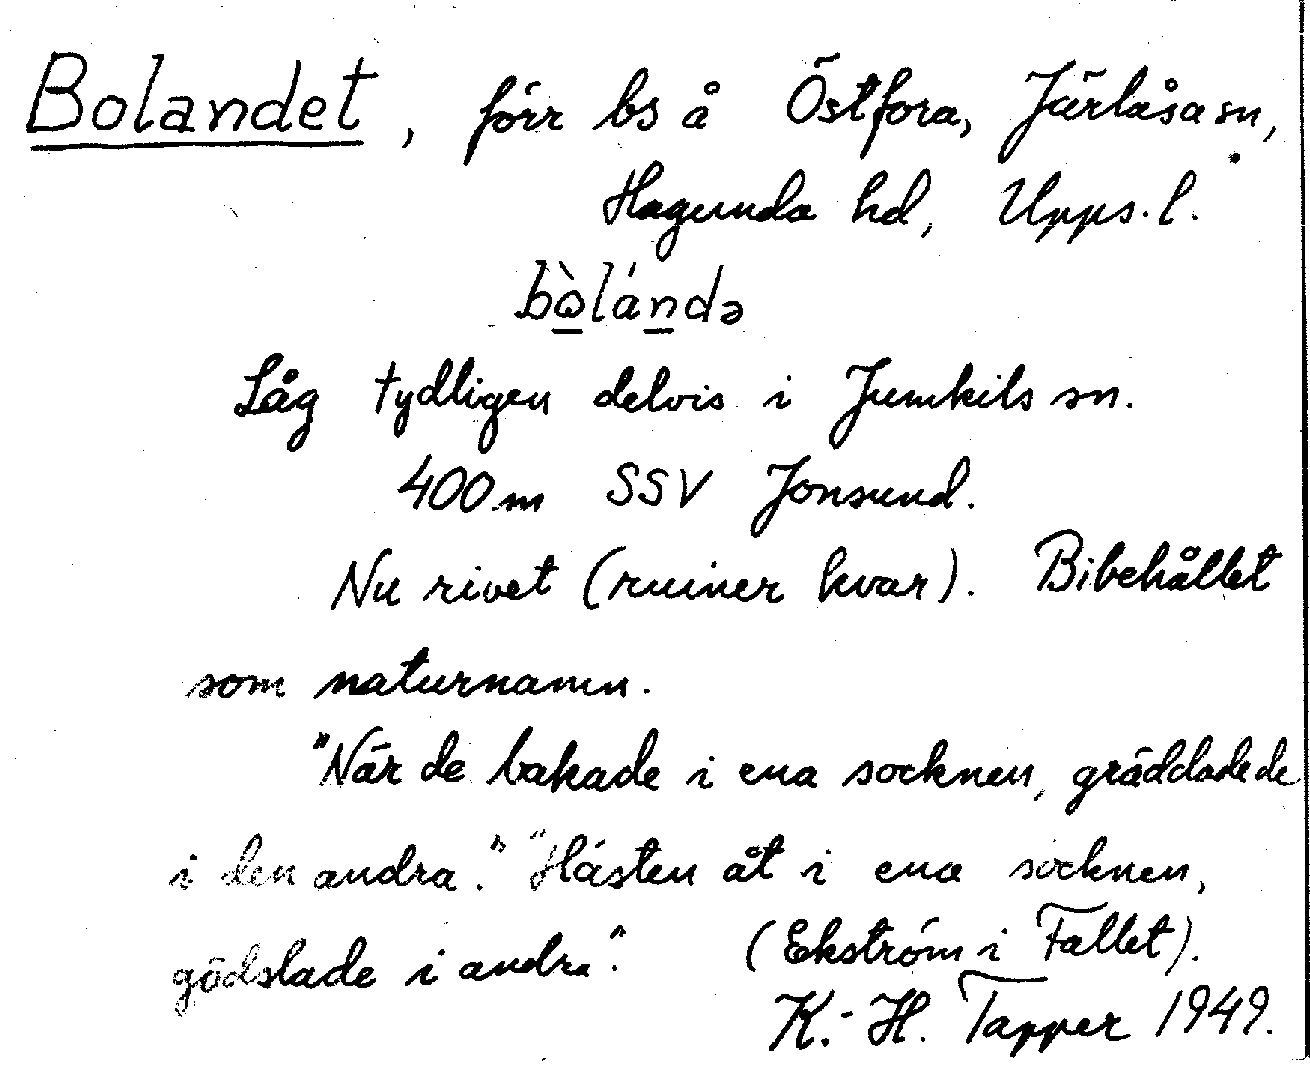 Bolandet, förr bs å Östfora, Järlåsa sn,
Hagunda hd, Upps. l.
bò̱lán̲də
Låg tydligen delvis i Jumkils sn.
400 m SSV Jonsund.
Nu rivet (ruiner kvar). Bibehållet
som naturnamn.
"När de bakade i ena socknen, gräddade de
i den andra". "Hästen åt i ena socknen,
gödslade i andra". (Ekström i Fallet).
K.-H. Tapper 1949.